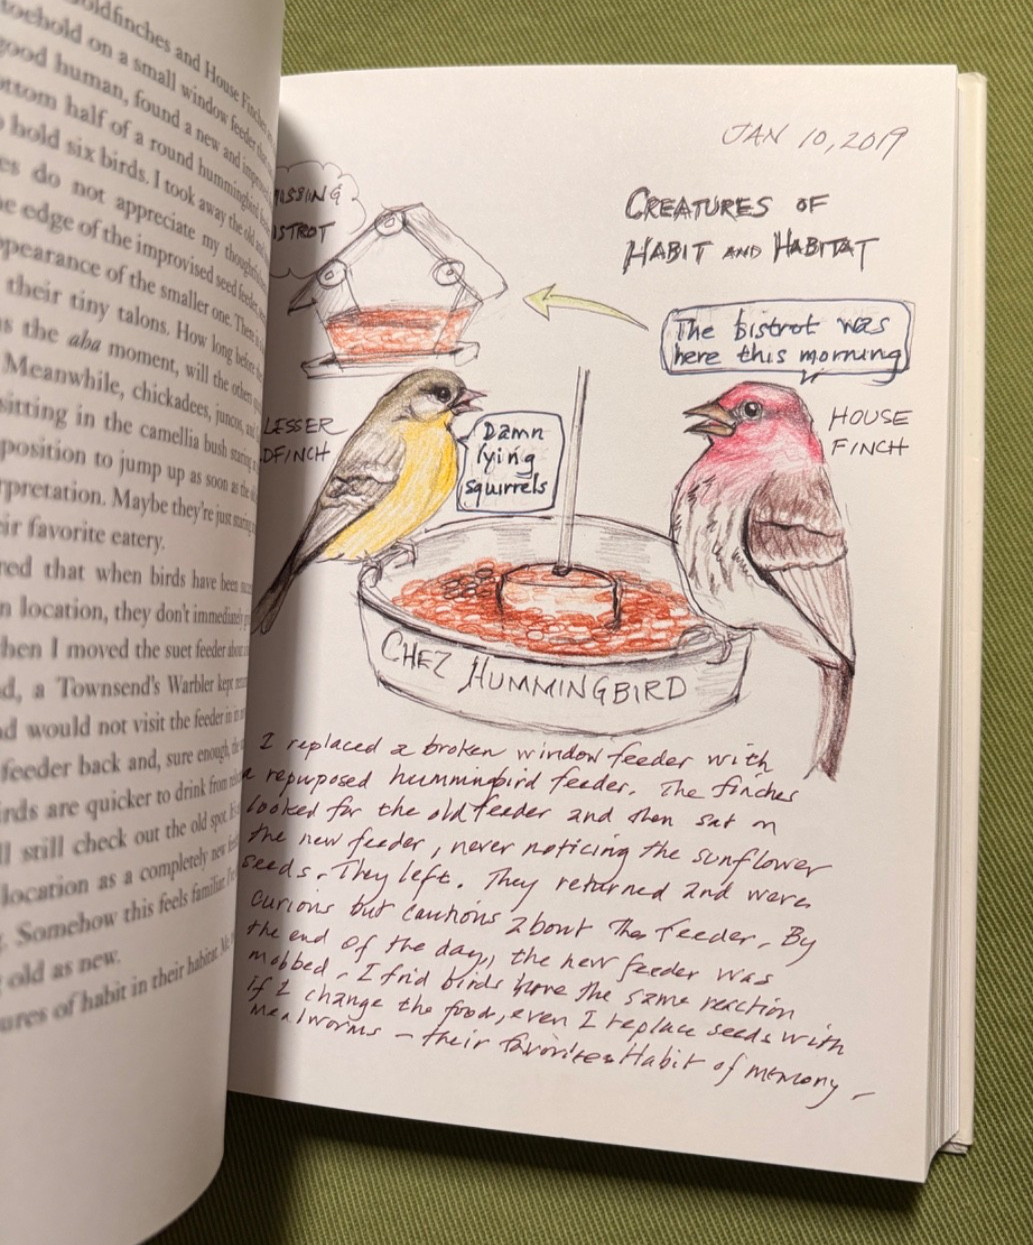 Goldfinches and House Finches
toehold on a small window feeder that
good human, found a new and improved
bottom half of a round hummingbird
hold six birds. I took away the old and
do not appreciate my thoughtfulness
edge of the improvised seed feeder,
appearance of the smaller one. Then
their tiny talons. How long before the
the aha moment, will the others
Meanwhile, chickadees, juncos, and
sitting in the camellia bush staring
position to jump up as soon as the
Maybe they're just staring
favorite eatery.
that when birds have been
location, they don't immediately
when I moved the suet feeder about
a Townsend's Warbler kept
would not visit the feeder in
feeder back and, sure enough, the
are quicker to drink from
still check out the old spot.
location as a completely new
Somehow this feels familiar.
old as new.
of habit in their habitat.
JAN 10, 2019
CREATURES OF
HABIT AND HABITAT
MISSING
BISTROT
The bistrot was
here this morning
LESSER
GOLDFINCH
Damn
lying
squirrels
HOUSE
FINCH
CHEZ HUMMINGBIRD
I replaced a broken window feeder with
a repurposed hummingbird feeder. The finches
looked for the old feeder and then sat on
the new feeder, never noticing the sunflower
seeds. They left. They returned and were
curious but cautious about the feeder. By
the end of the day, the new feeder was
mobbed. I find birds have the same reaction
if I change the food, even I replace seeds with
mealworms – their favorite. Habit of memory –